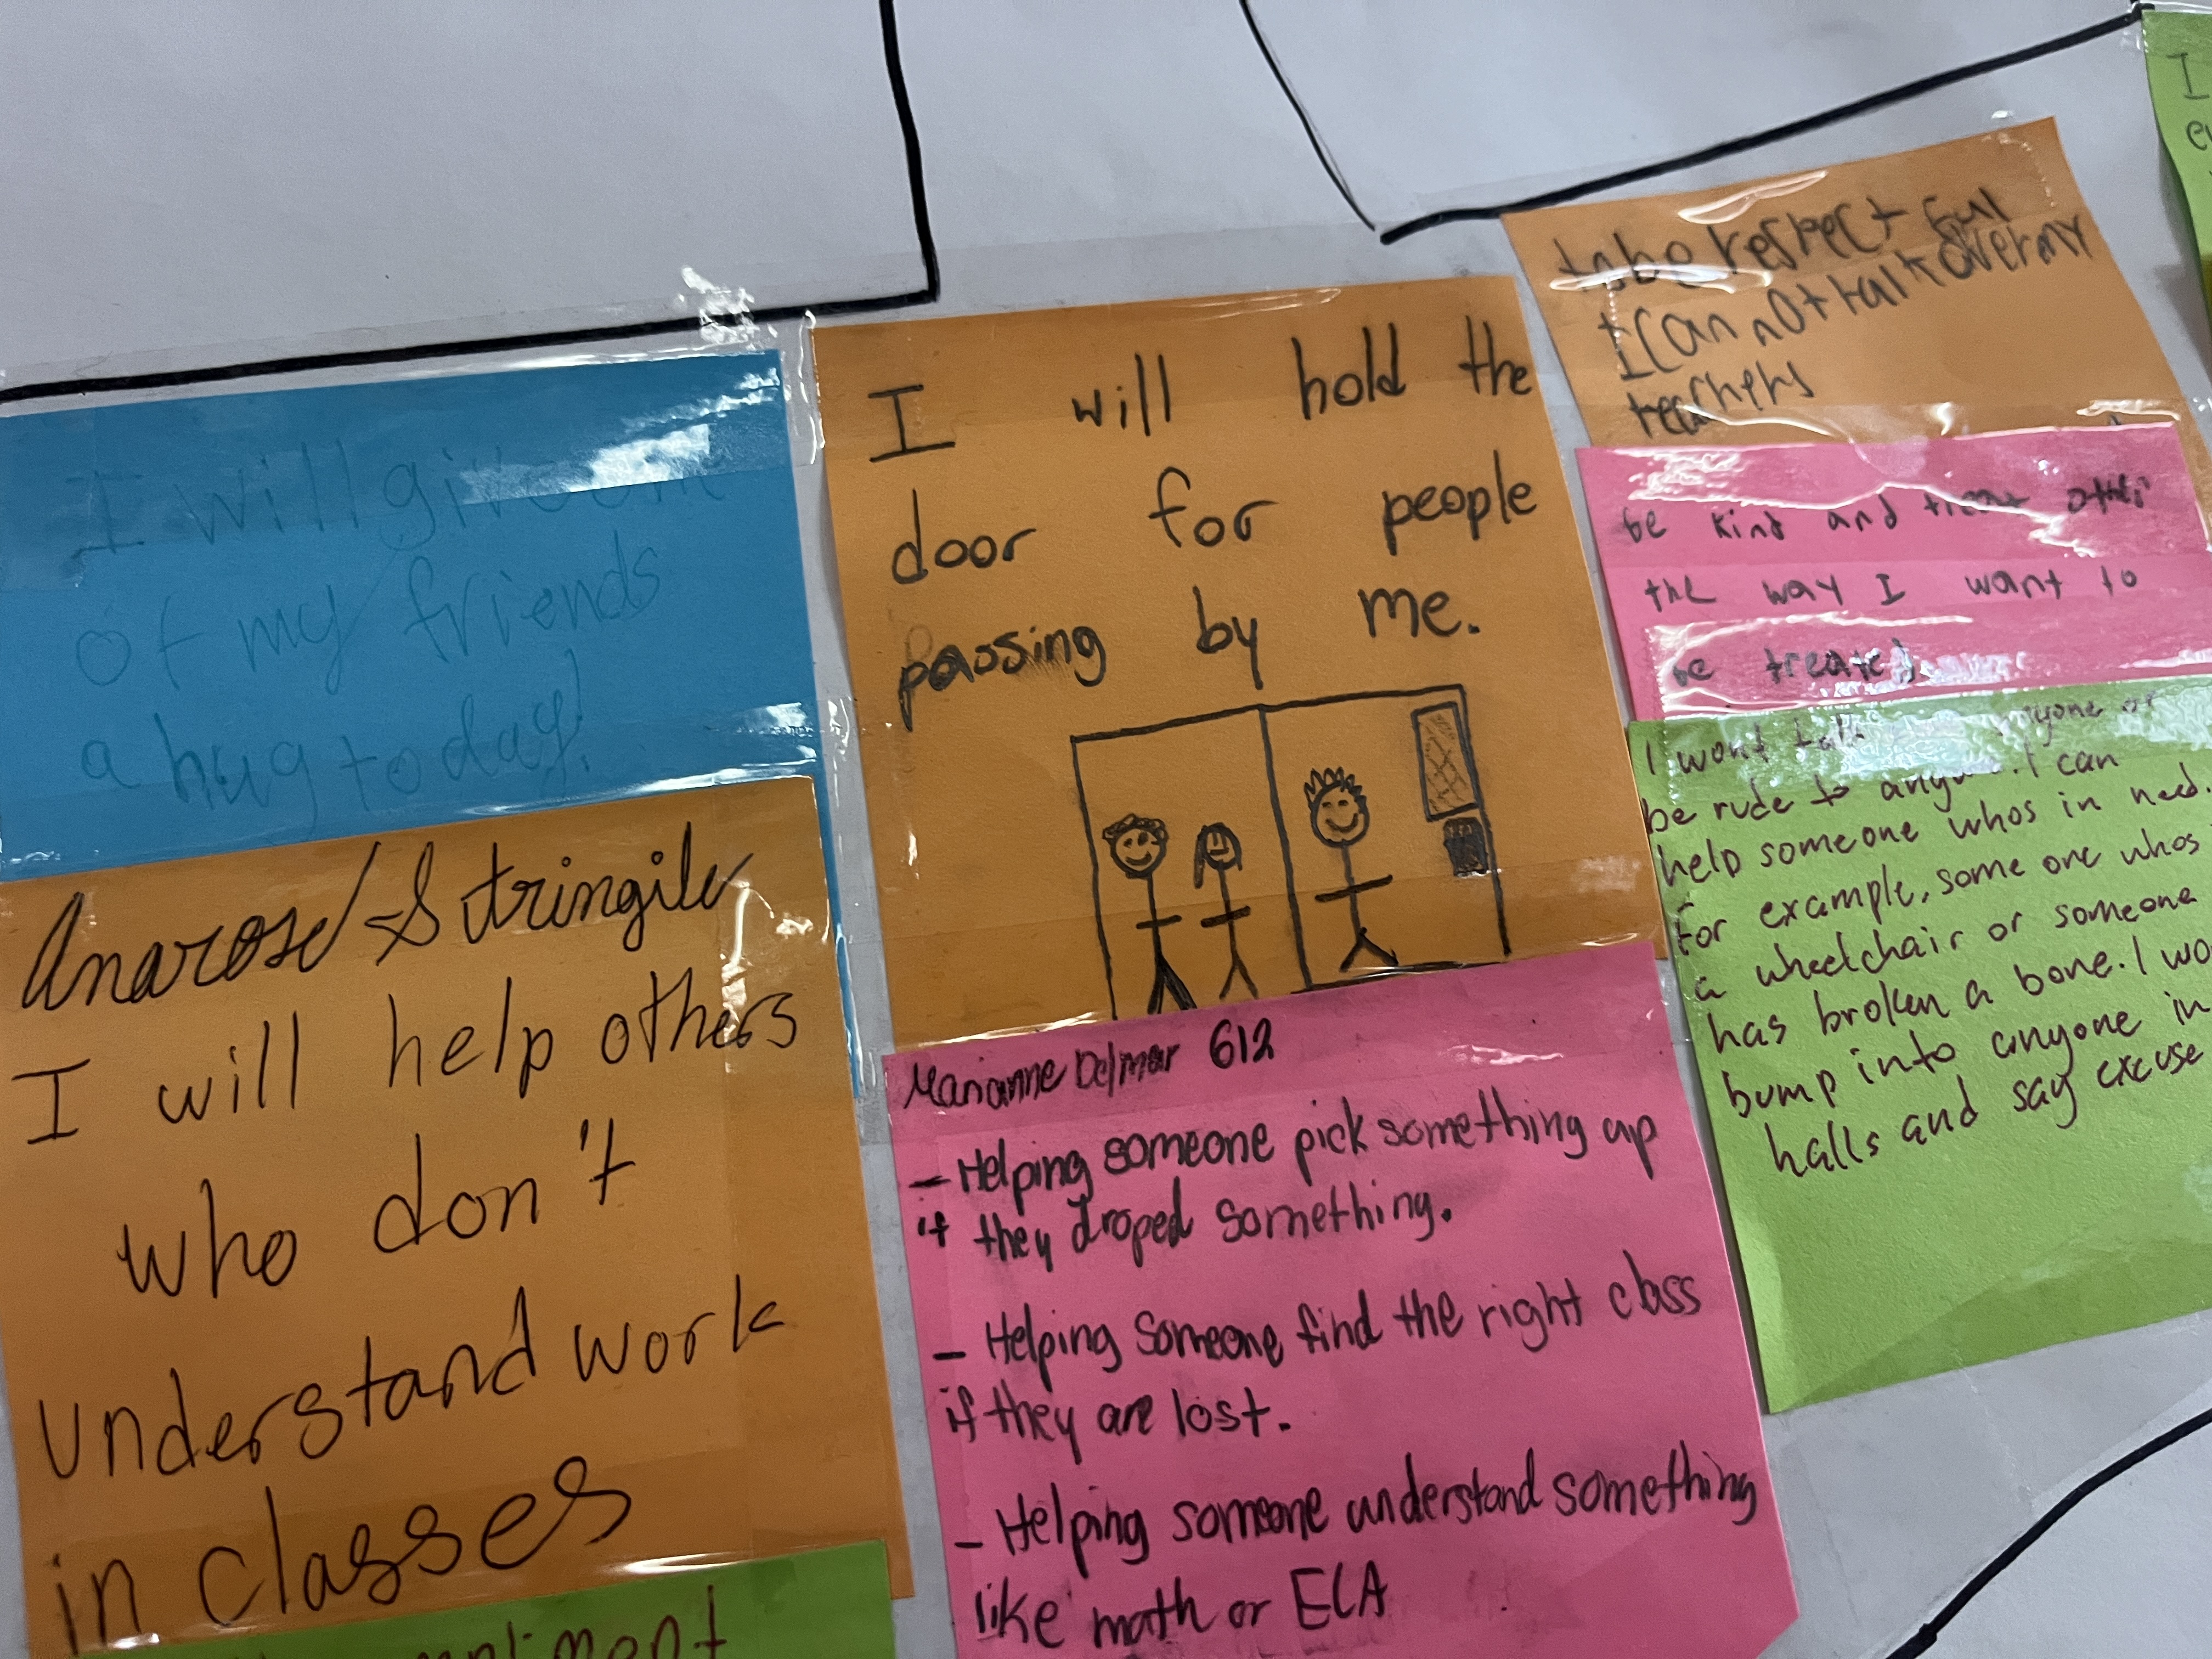 I will give
of my friends
a hug today!
Anarose Stringile
I will help others
who don't
understand work
in classes
I will hold the
door for people
passing by me.
Marianne Delmar 612
- Helping someone pick something up
if they droped something.
- Helping someone find the right class
if they are lost.
- Helping someone understand something
like math or ELA
to be respect ful
I Can not talk over my
teachers
be kind and treat
the way I want to
be treated
I wont talk anyone or
be rude to I can
help someone whos in need.
For example, some one whos
a wheelchair or someone
has broken a bone. I
bump into anyone in
halls and say excuse
I